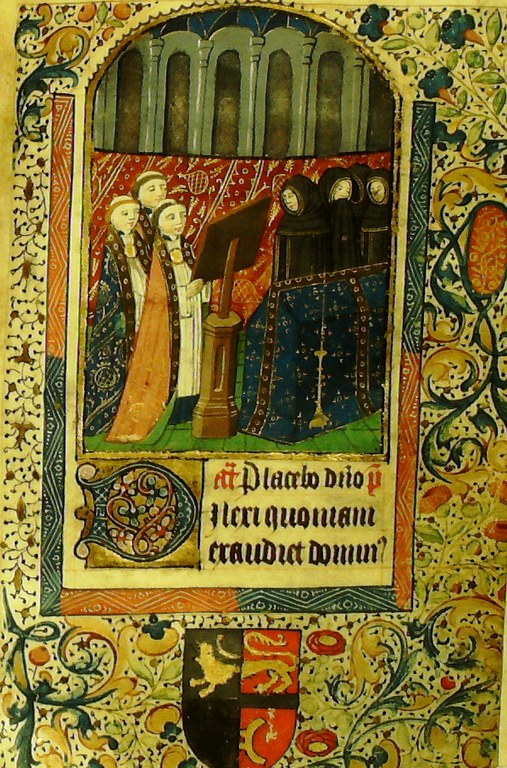 añ Placebo dño p̄
Dilexi quoniam
exaudiet domin⁹